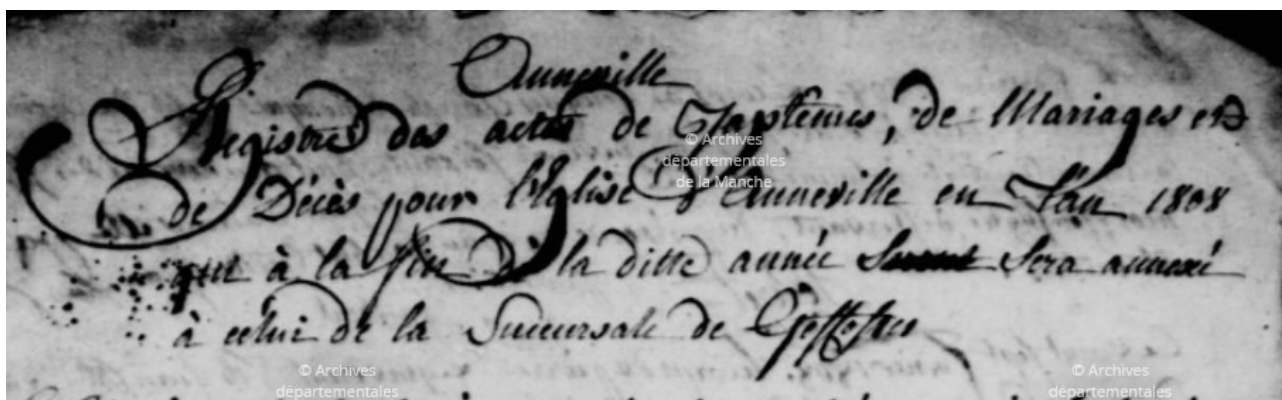 Anneville
Registre des actes de Baptêmes, de Mariages et
de Décès pour l'Eglise d'Anneville en l'an 1808
qui à la fin de la ditte année sera annexé
à celui de la Succursale de Geffosses
© Archives
départementales
de la Manche
© Archives
départementales
© Archives
départementales